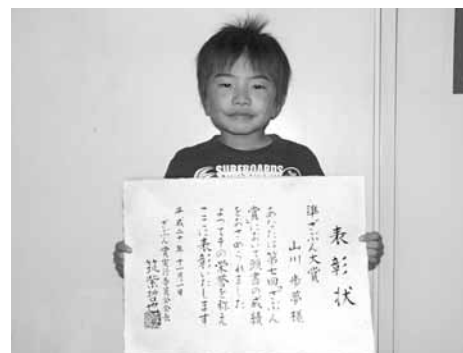 SURFBOARDS
表彰状
準ざぶん大賞
山川 歩夢 様
あなたは第七回「ざぶん
賞」において頭書の成績
をおさめられました
よってその栄誉を称え
ここに表彰いたします
平成二十年十一月一日
ざぶん賞実行委員会会長
筑紫哲也